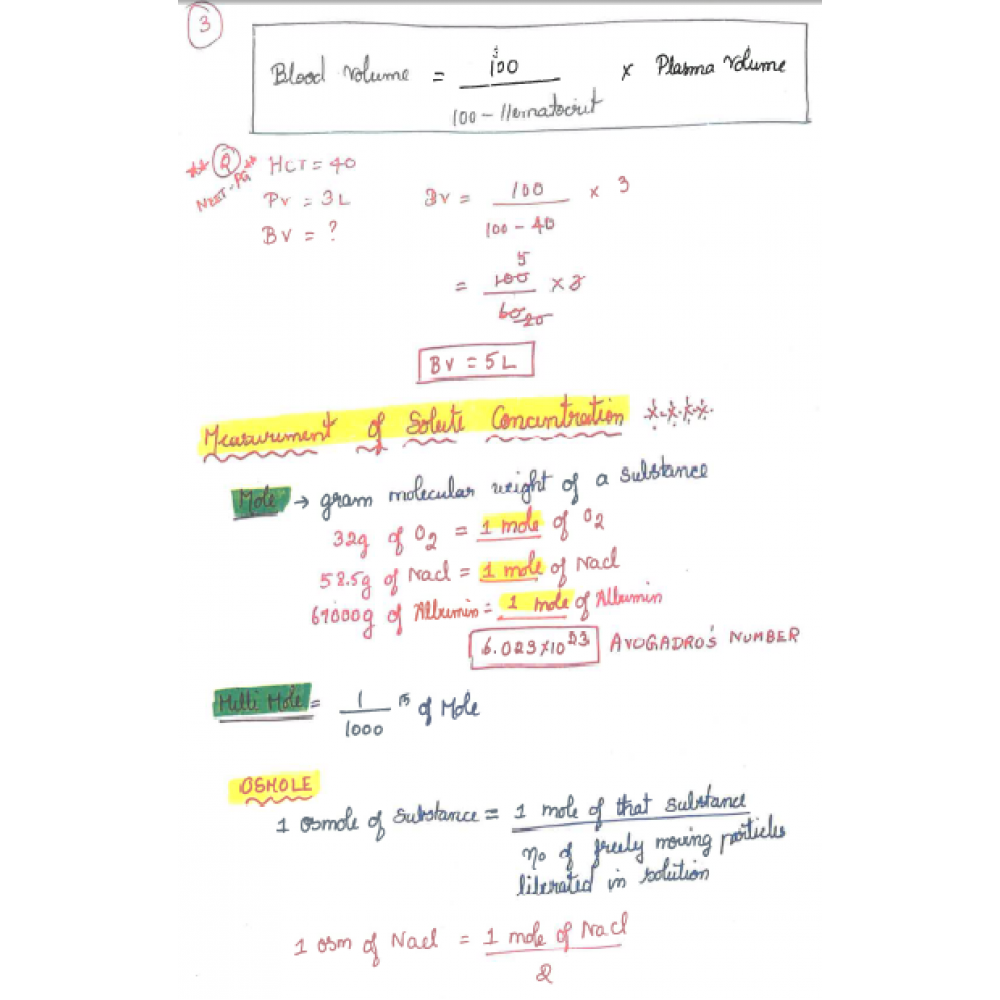 3
Blood Volume = 100 / 100 - Hematocrit × Plasma Volume
** Q ** HCT = 40
NEET-PG
PV = 3L BV = 100 / 100 - 40 × 3
BV = ?
= 100 5 / 60 20 × 3
BV = 5L
Measurement of Solute Concentration
Mole → gram molecular weight of a substance
32g of O2 = 1 mole of O2
58.5g of Nacl = 1 mole of Nacl
69000g of Albumin = 1 mole of Albumin
6.023×10 23 AVOGADRO'S NUMBER
Milli Mole = 1 / 1000 th of Mole
OSMOLE
1 osmole of substance = 1 mole of that substance
no of freely moving particles
liberated in solution
1 osm of Nacl = 1 mole of Nacl
2